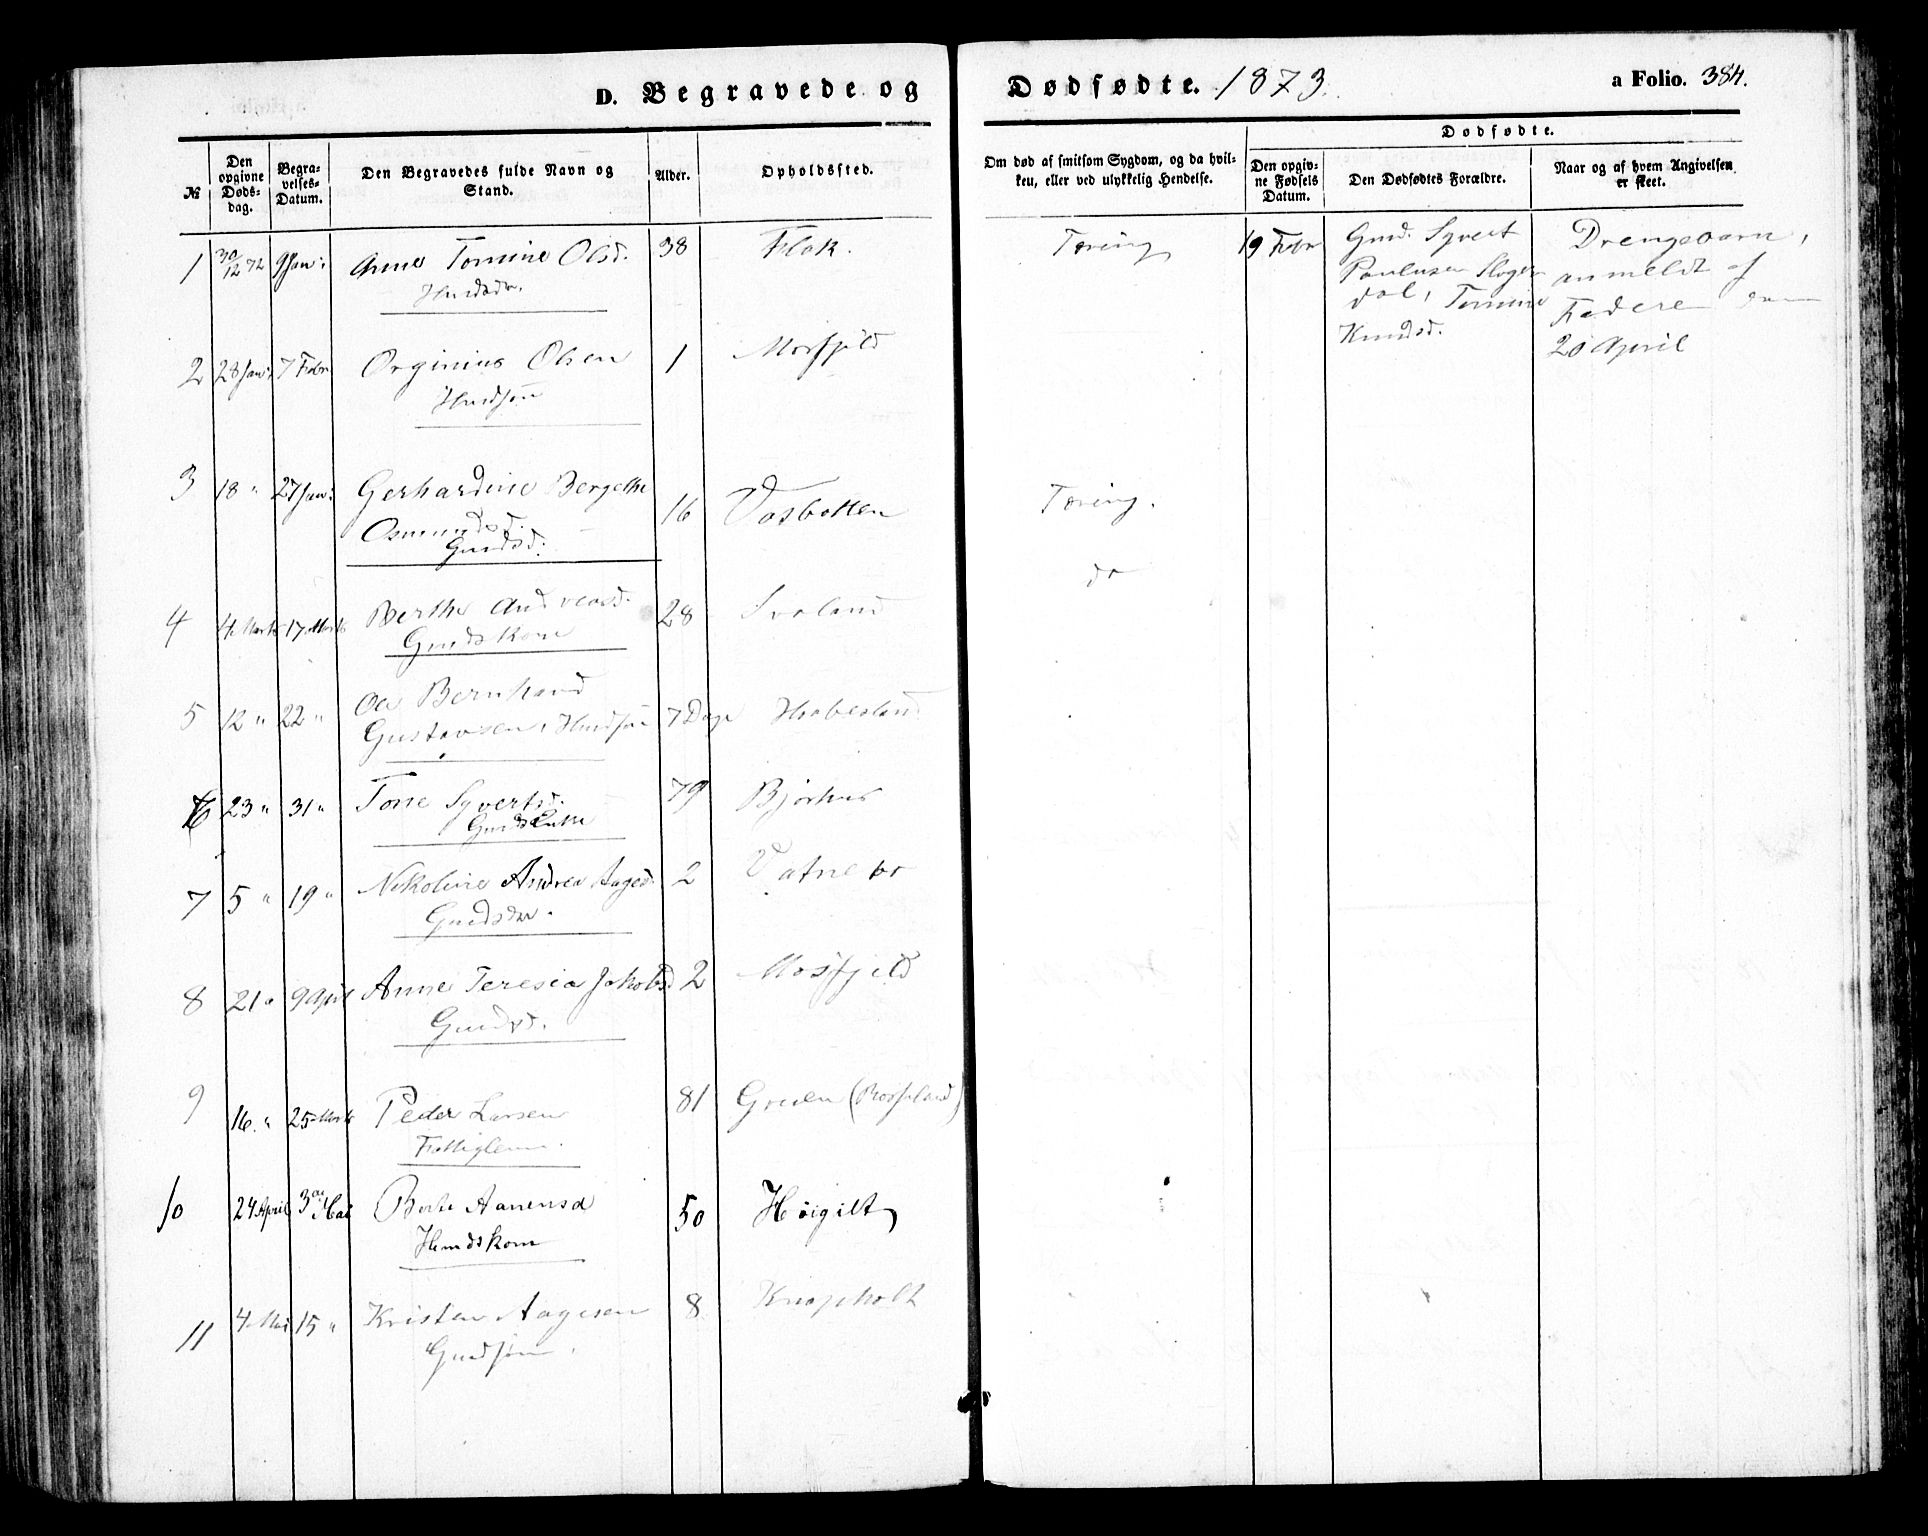 D. Begravede og Dødfødte. 1873. a Folio. 384.
№
Den opgivne Døds-dag.
Begra-velses-Datum.
Den Begravedes fulde Navn og Stand.
Alder.
Opholdssted.
Om død af smitsom Sygdom, og da hvil-ken, eller ved ulykkelig Hendelse.
Dødfødte.
Den opgiv-ne Fødsels Datum.
Den Dødfødtes Forældre.
Naar og af hvem Angivelsen er skeet.
1 30/12 72 9 Jan: Anne Tomine Olsd. 38 Flak. Tæring
2 28 Jan: 7 Febr Orginius Olsen 1 Mosfjeld
Husdsøn
3 18 " 27 Jan: Gerhardine Bergethe 16 Vasbotten Tæring.
Osmundsd.
Gmdsd.
4 4 Marts 17 Marts Berthe Andreasd. 28 Svaland do
Gmdskone
5 12 " 22 " Ole Bernhard 7 Dage Habesland
Gustavsen, Husdsøn
6 23 " 31 " Tone Syvertsd. 79
Gmdsenke
7 5 " 19 " Nikoline Andrea Aagesd. 2 Vatne
Gmdsdtr.
8 21 " 9 April Anne Teresia Jakobsd 2 Mosfjeld
Gmdsd.
9 16. " 25 Marts Peder Larsen 81 Greien (Rosseland)
Fattiglem.
10 24 April 3die Mai Berte Aanensd 50 Høigilt
Husdskone
11 4 Mai 15 " Kristen Aagesen 8 Knapholt
Gmdsøn.
19 Febr
Gmd. Syvert
Paulusen
dal, Tomine
Knudsd.
Drengebarn,
anmeldt af
Faderen den
20 April